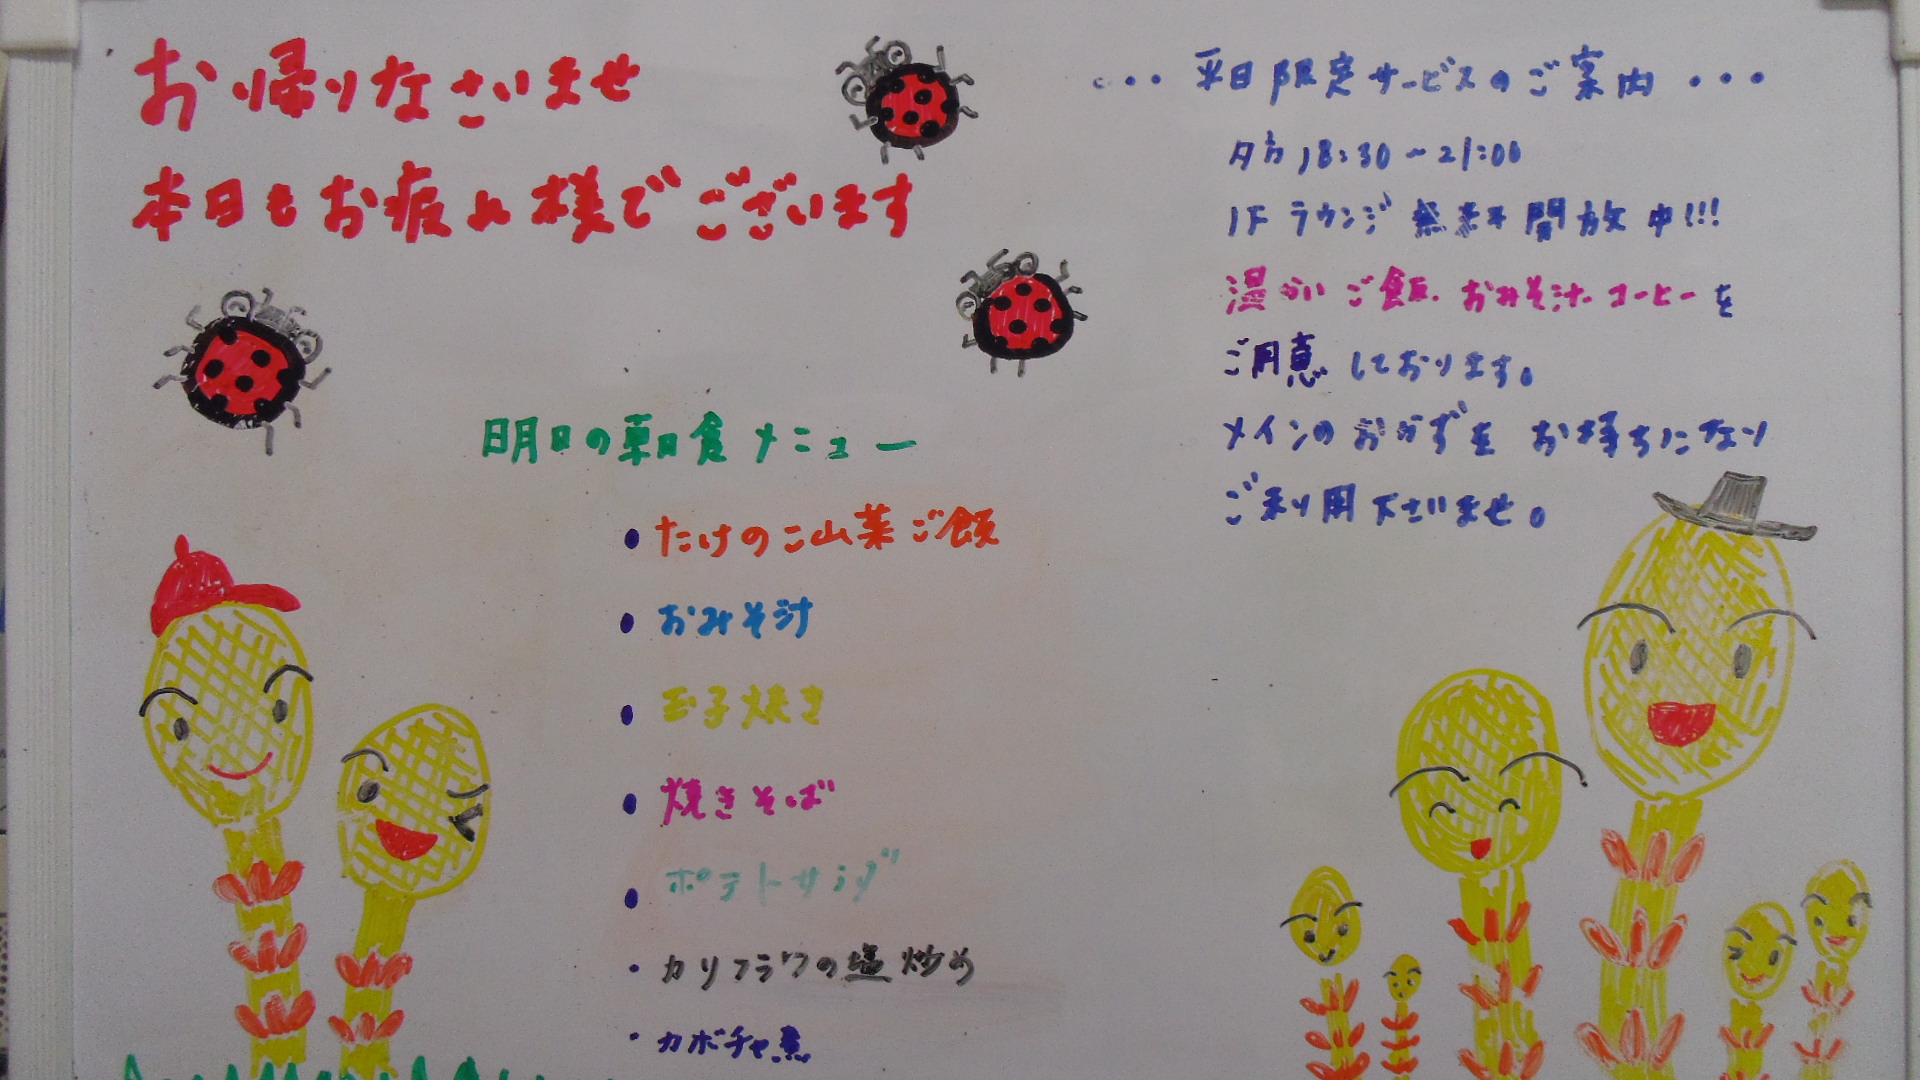 お帰りなさいませ
本日もお疲れ様でございます
明日の朝食メニュー
・たけのこ山菜ご飯
・おみそ汁
・玉子焼き
・焼きそば
・ポテトサラダ
・カリフラワの塩炒め
・カボチャ煮
・・・平日限定サービスのご案内・・・
夕方18:30~21:00
1Fラウンジ無料開放中!!!
温かいご飯、おみそ汁、コーヒーを
ご用意しております。
メインのおかずをお持ちになり
ご利用下さいませ。